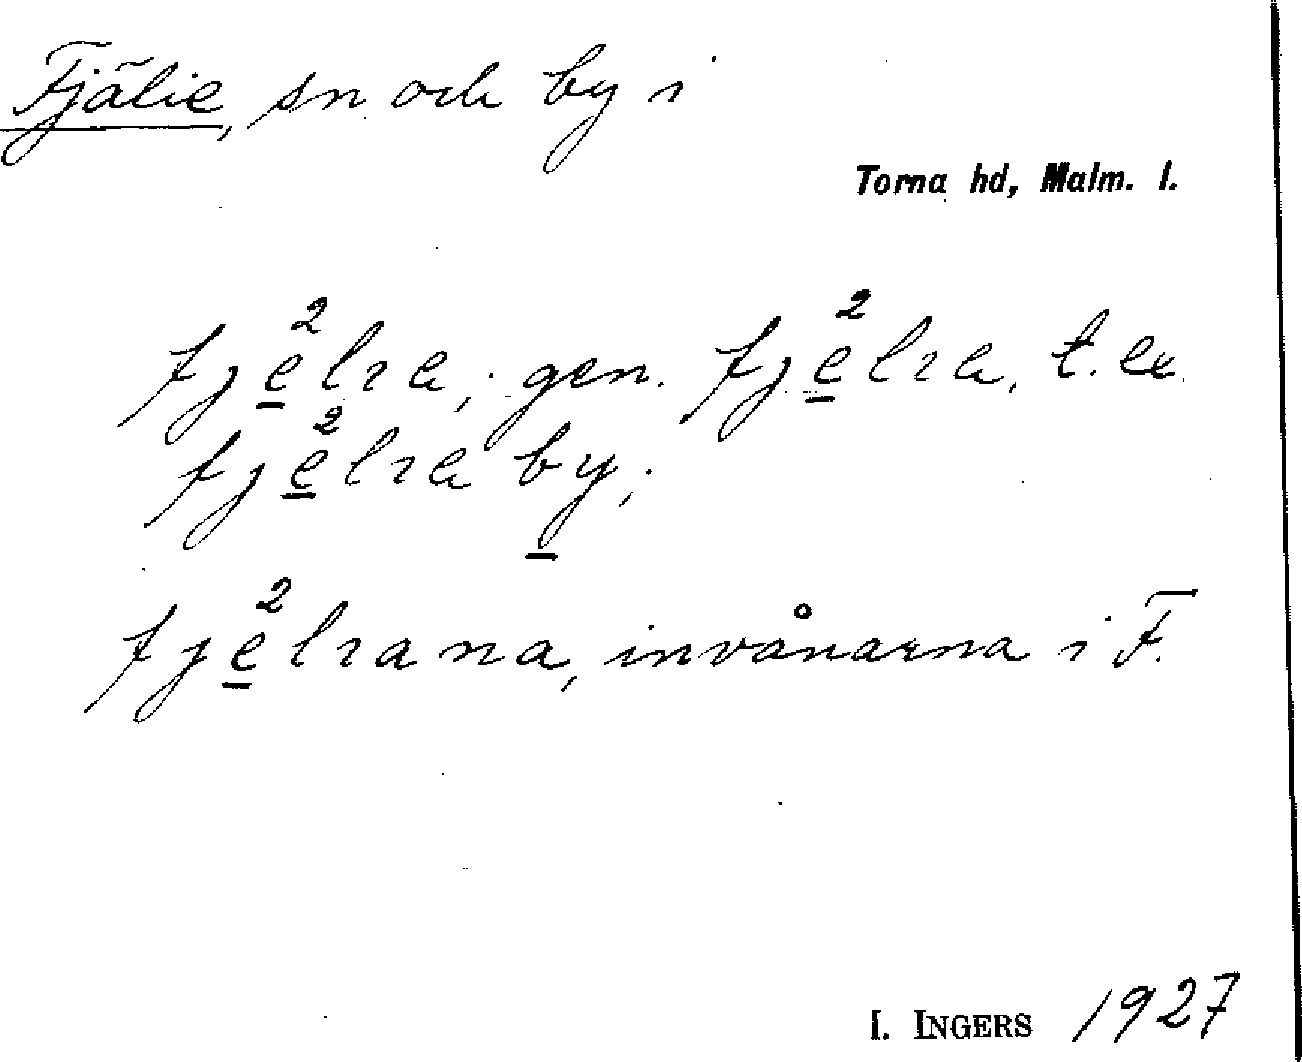 Fjälie, sn och by i
Torna hd, Malm. l.
fje̱²lra, gen. fje̱²lra, t. ex.
fje̱²lra by̱;
fje̱²lrana, invånarna i F.
I. INGERS 1927